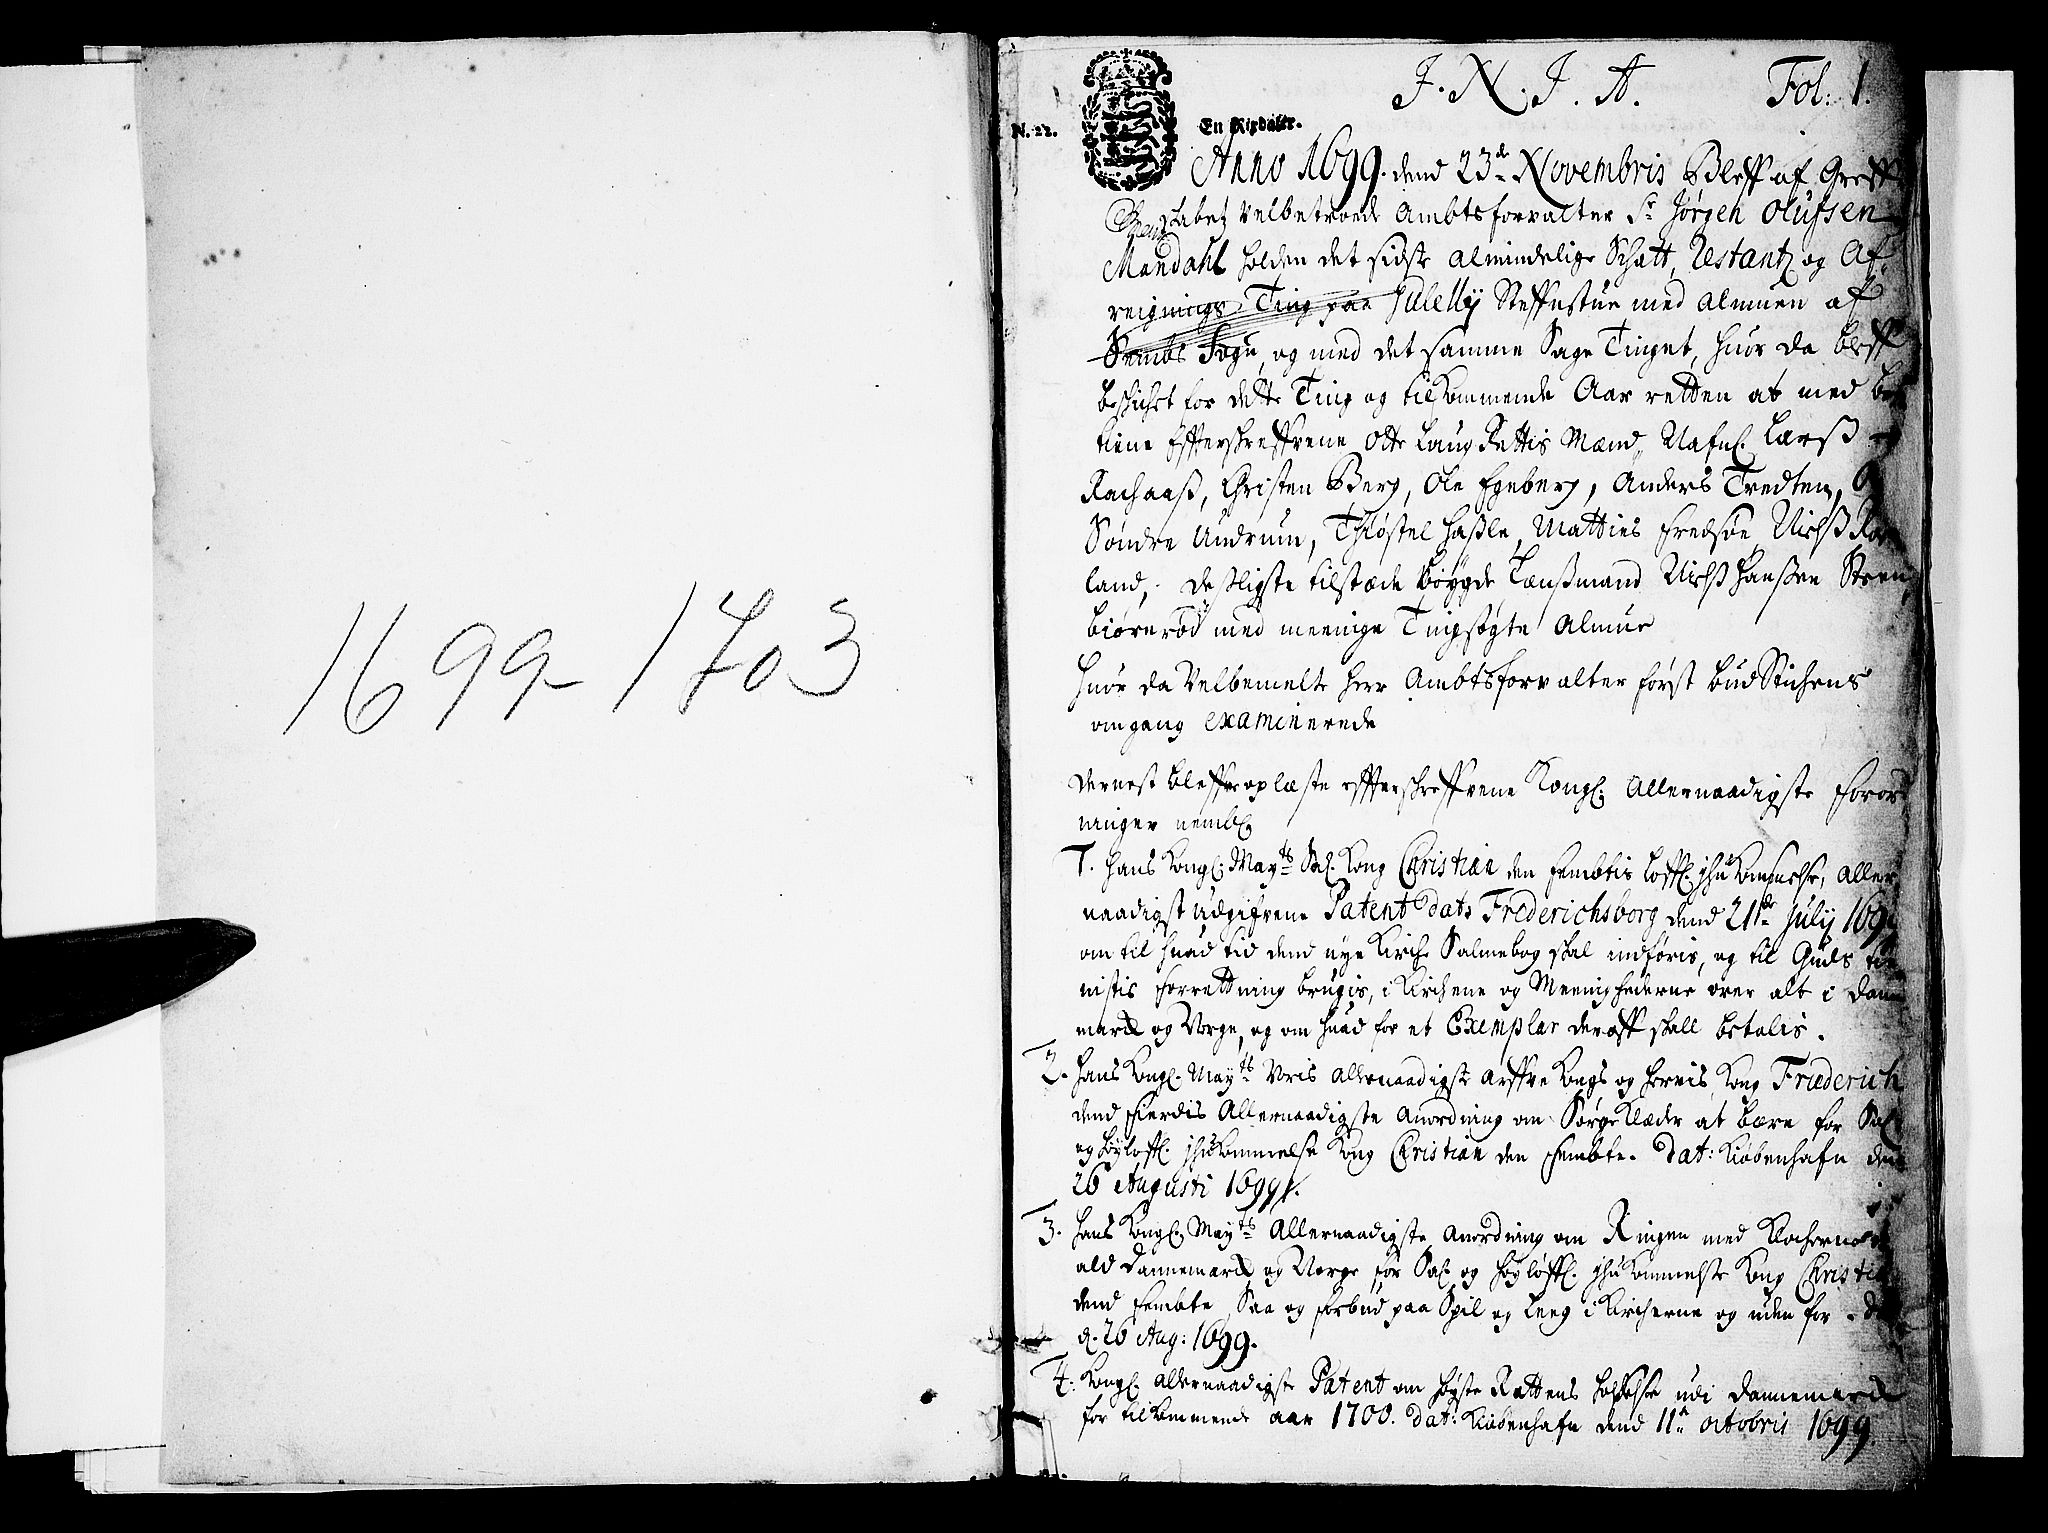 1699-1703
J. N. J. A. Fol: 1.
N. 22. En Rixdaler.
Anno 1699. dend 23de Novembris Bleff af Greff
skabetz Velbetroede Ambtsforvalter Sr Jørgen Olufsen
Mandahl holden det sidste almindelige Schatt, Restantz og Af
reignings Ting paa Steffnstue med Almuen af
Sembs Sogn, og med det samme Sage Tinget, huor da bleff
beskicket for dette Ting og tilkommende Aar retten at med be
tiene Effterskreffvene Otte Laug Rettis Mænd, Nafnl. Larß
Rachaaß, Christen Berg, Ole Egeberg, Anders Tredten,
Søndre Undrum, Thiøstel Haßle, Matties Fredsøe, Nielß
land, Desligste tilstæde Bøygde Lænßmand Nielß Hanßen Steen
biørnrød med meenige Tingsøgte Almue
Huor da Velbemelte Herr Ambtsforvalter først budStichens
omgang examinerede
Dernest bleffve oplæste effterskreffvene Kongl: Allernaadigste Foror
ninger nembl.
1. Hans Kongl: Mayts Sal. Kong Christian den Fembtis loffl. ihukommelse, Aller
naadigst udgifvene Patent dats Friderichsborg dend 21de July 169
om til huad tid dend nye Kirche Salmebog skal indføris, og til Guds tie
nistis forrettning brugis, i Kirchene og Meenighederne over alt i Dan
marck og Norge, og om huad for et Exemplar deraff skall betalis.
2. Hans Kongl. Mayts Voris allernaadigste arffve Kongs og Herris, Kong Friderich
dend Fierdis Allernaadigste Anordning om Sørge Klæder at bære for Sal.
og høyloffl. ihukommelse Kong Christian den Fembte. Dat: Kiøbenhafn den
26 Augusti 1699.
3. Hans Kongl. Mayts Allernaadigste Anordning om Ringen med Klocherne
ald Dannemarck og Norge for Sal. og høyloffl. ihukommelse Kong Christi
dend Fembte, Saa og forbud paa Spil og Leeg i Kircherne og uden for.
d. 26 Aug: 1699.
4: Kongl. allernaadigste Patent om høyste Rettens holdelse udi Dannemarck
for tilkommende aar 1700. Dat: Kiøbenhafn dend 11te Octobris 1699